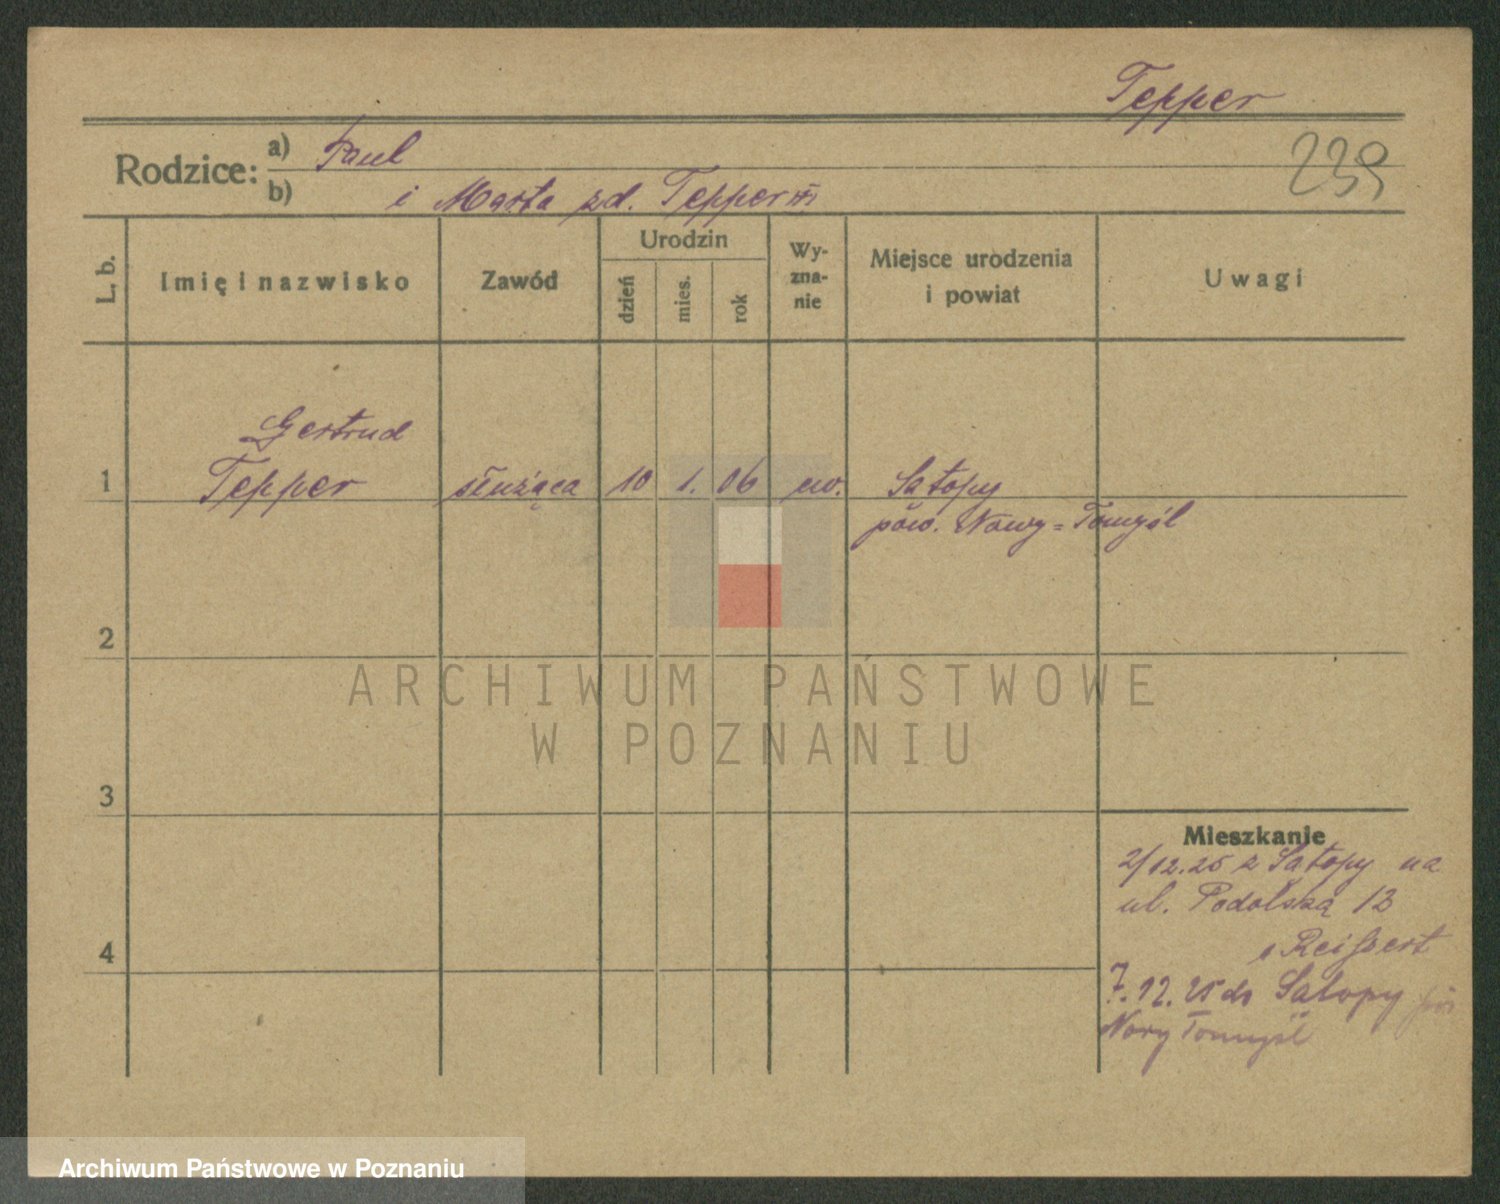 Tepper
239
Rodzice:
a) Paul
b) i Marta zd. Tepper
L. b.
Imię i nazwisko
Zawód
Urodzin
dzień
mies.
rok
Wy-
zna-
nie
Miejsce urodzenia
i powiat
Uwagi
Gertrud
1 Tepper służąca 10 1. 06 ew. Sątopy
pow. Nowy=Tomyśl
2
3
4
Mieszkanie
2/12.25 z Sątopy na
ul. Podolską 13
7.12.25 do Satopy
Nowy Tomyśl
ARCHIWUM PAŃSTWOWE
W POZNANIU
Archiwum Państwowe w Poznaniu